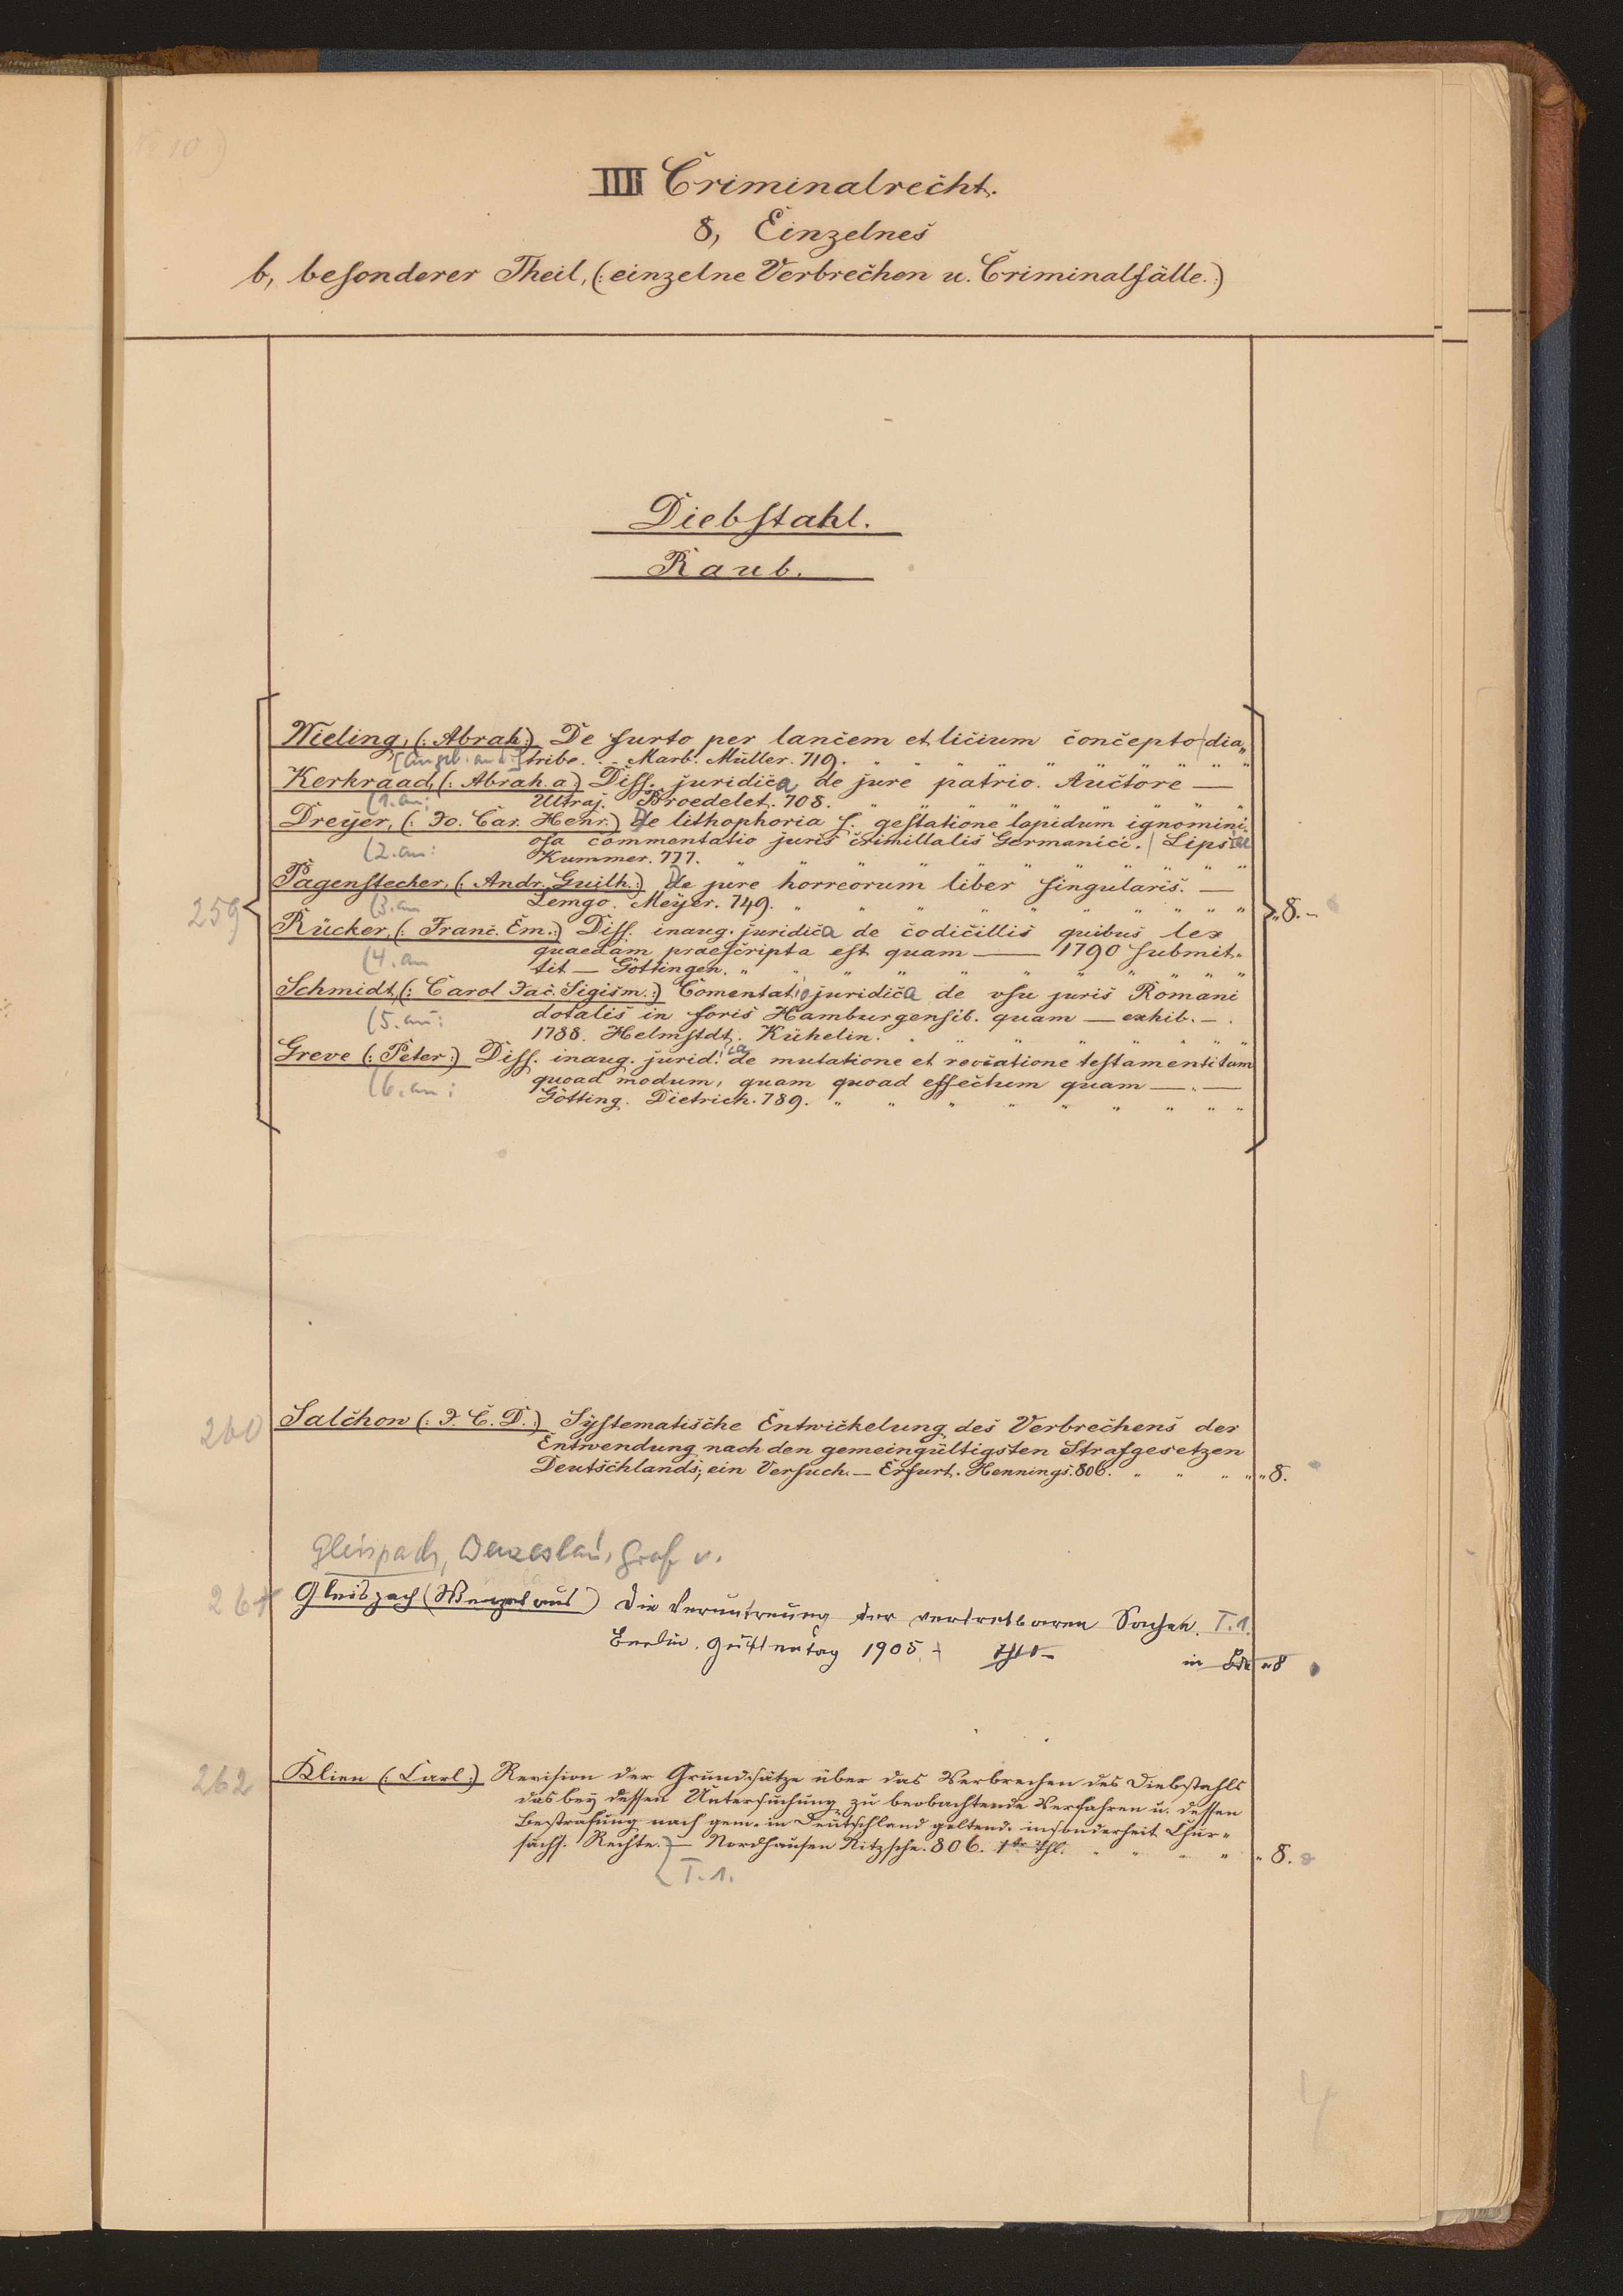 IIII Criminalrecht.
8, Einzelnes
b, besonderer Theil, (: einzelne Verbrechen u. Criminalfälle. :)
Diebstahl.
Raub.
Wieling, (: Abrah :) De furto per lancem et licium concepto / dia„
tribe. - Marb. Müller. 719. „ „ „ „ „ „ „ „ „
Kerkraad, (: Abrah. a :) Diss. juridica de jure patrio. Auctore —
(1. an: Ultraj. Broedelet. 708. „ „ „ „ „ „ „ „ „
Dreyer, (: Jo. Car. Henr. :) De lithophoria s. gestatione lapidum ignomini„
osa commentatio juris crimillalis Germanici. / Lipsiae
(2. an: Kummer. 777. „ „ „ „ „ „ „ „ „ „
Pagenstecher, (: Andr. Guilh. :) De jure horreorum liber singularis. —
(3. an Lemgo. Meyer. 749. „ „ „ „ „ „ „ „ „
259 „8. -
Rücker, (: Franc. Em. :) Diss. inaug. juridica de codicillis quibus lex
quaedam praescripta est quam — 1790 submit„
(4. an tit — Göttingen. „ „ „ „ „ „ „ „ „ „
Schmidt, (: Carol Jac. Sigism. :) Comentatio juridica de usu juris Romani
(5. an: dotalis in foris Hamburgensib. quam — exhib. — .
1788. Helmstdt. Kühelin. „ „ „ „ „ „ „ „
Greve (: Peter :) Diss. inaug. jurid.ica de mutatione et revocatione testamenti tam
(6. an: quoad modum, quam quoad effectum quam — „ —
Götting. Dietrich. 789. „ „ „ „ „ „ „ „ „
260 Salchow (: J. C. D. :) Systematische Entwickelung des Verbrechens der
Entwendung nach den gemeingültigsten Strafgesetzen
Deutschlands; ein Versuch. — Erfurt. Hennings. 806. „ „ „ „ „ 8.
Gleispach, Wenzeslaus, Graf v.
261 Gleispach (Wenzel aus) Die Veruntreuung der vertretbaren Sachen. T. 1.
Berlin. Guttentag 1905. in Bde „ 8
262 Klien (: Carl :) Revision der Grundsätze über das Verbrechen des Diebstahls
das bey dessen Untersuchung zu beobachtende Verfahren u. dessen
Bestrafung nach gem. in Deutschland geltend. insonderheit Chur„
sächs. Rechte. — Nordhausen Nitzsche. 806. 1ter Thl. „ „ „ „ „ 8.
T. 1.
4